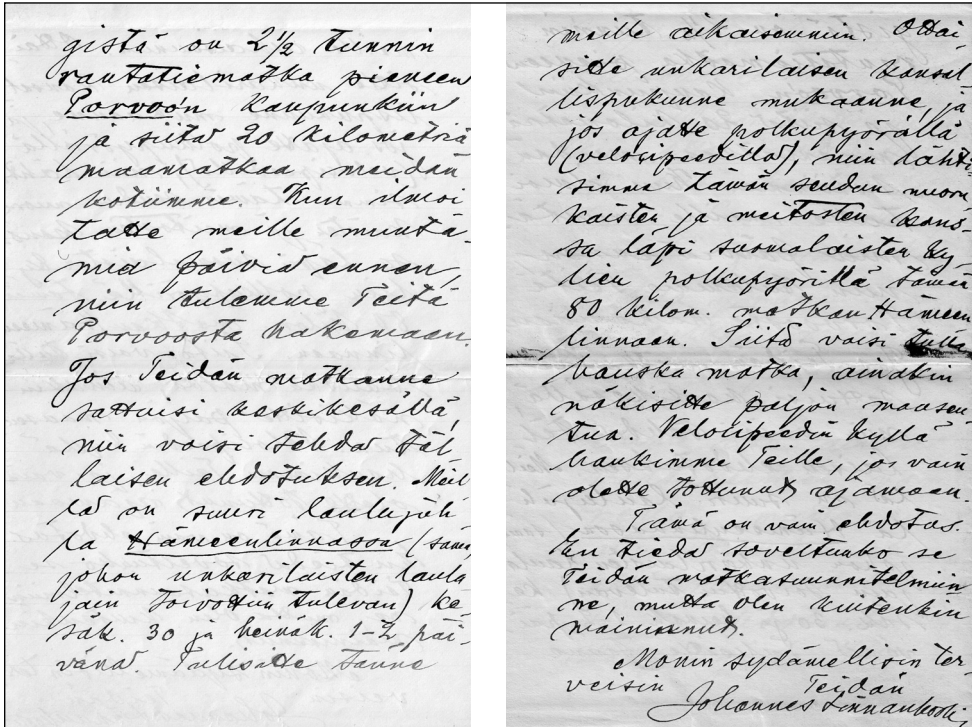 gistä on 2 1/2 tunnin
rantatiematka pieneen
Porvoon kaupunkiin
ja siitä 20 kilometriä
maamatkaa meidän
kotiimme. Kun ilmoi
tatte meille muuta-
mia päiviä ennen,
niin tulemme Teitä
Porvoosta hakemaan.
Jos Teidän matkanne
sattuisi keskikesällä,
niin voisi tehdä täl-
laisen ehdotuksen. Meil
lä on suuri laulujuh
la Hämeenlinnassa (sama,
johon unkarilaisten laula
jain toivottiin tulevan) ke-
säk. 30 ja heinäk. 1-2 päi-
vänä. Tulisitte tänne
meille aikaisemmin. Ottai
sitte unkarilaisen kansal
lispukunne mukaanne, ja
jos ajatte polkupyörällä
(velosipeedillä), niin lähti
simme tämän seudun nuoru
kaisten ja neitosten kans-
sa läpi suomalaisten ky-
lien polkupyörillä tämän
80 kilom. matkan Hämeen
linnaan. Siitä voisi tulla
hauska matka, ainakin
näkisitte paljon maaseu
tua. Velosipeedin kyllä
hankimme Teille, jos vain
olette tottunut ajamaan.
Tämä on vain ehdotus.
En tiedä soveltuuko se
Teidän matkasuunnitelmiin
ne, mutta olen kuitenkin
maininnut.
Monin sydämellisin ter
veisin Teidän
Johannes Linnankoski